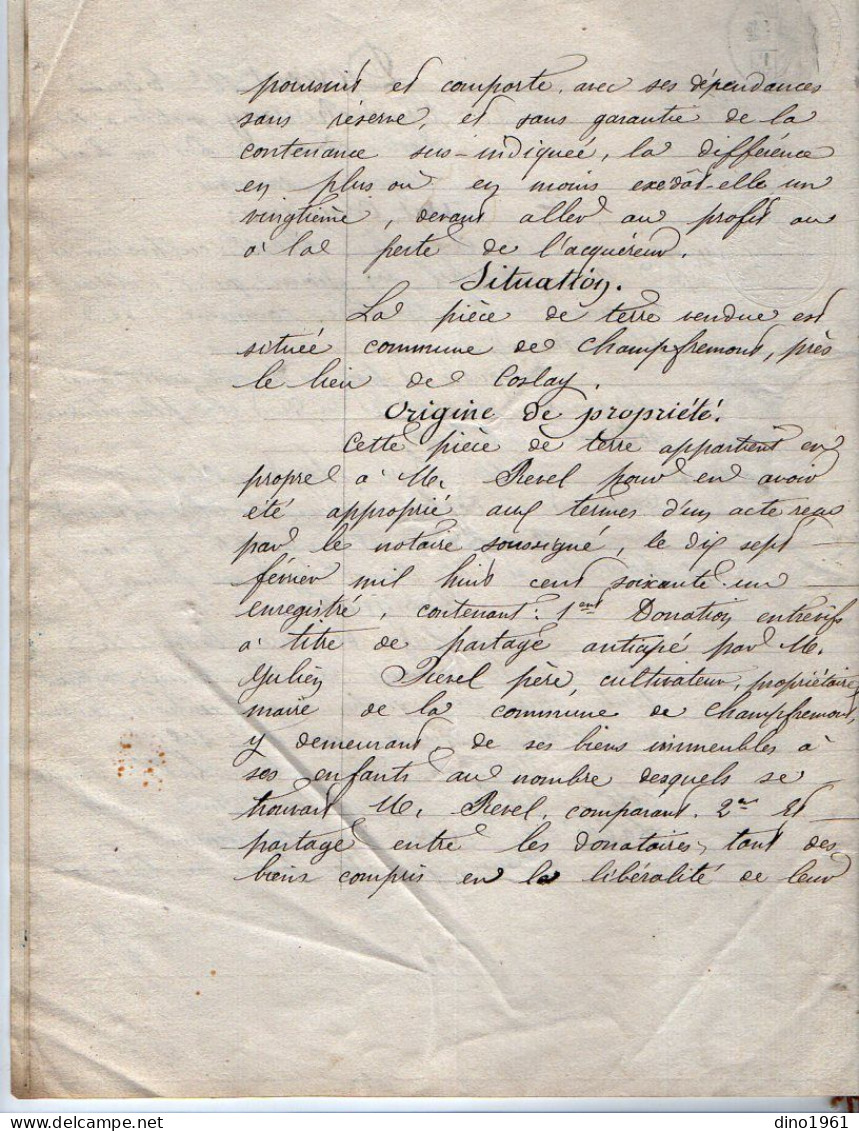 poursuit et comporte, avec ses dépendances
sans réserve, et sans garantie de la
contenance sus-indiqueé, la différence
en plus ou en moins exedât-elle un
vingtième, devant aller au profit ou
à la perte de l'acquéreur.
Situation.
La pièce de terre vendue est
située commune de Champfremont, près
le lieu de Coslay.
Origine de propriété.
Cette pièce de terre appartient en
propre à M. Revel pour en avoir
été approprié aux termes d'un acte recu
par le notaire soussigné, le dix sept
février mil huit cent soixante un
enregistré, contenant: 1ent Donation entrevifs
à titre de partage anticipé par M.
Julien Revel père, cultivateur, propriétaire,
maire de la commune de Champfremont,
y demeurant, de ses biens immeubles à
ses enfants au nombre desquels se
trouvait M. Revel, comparant. 2ent Et
partage entre les donataires, tant des
biens compris en la libéralité de leur
dino1961